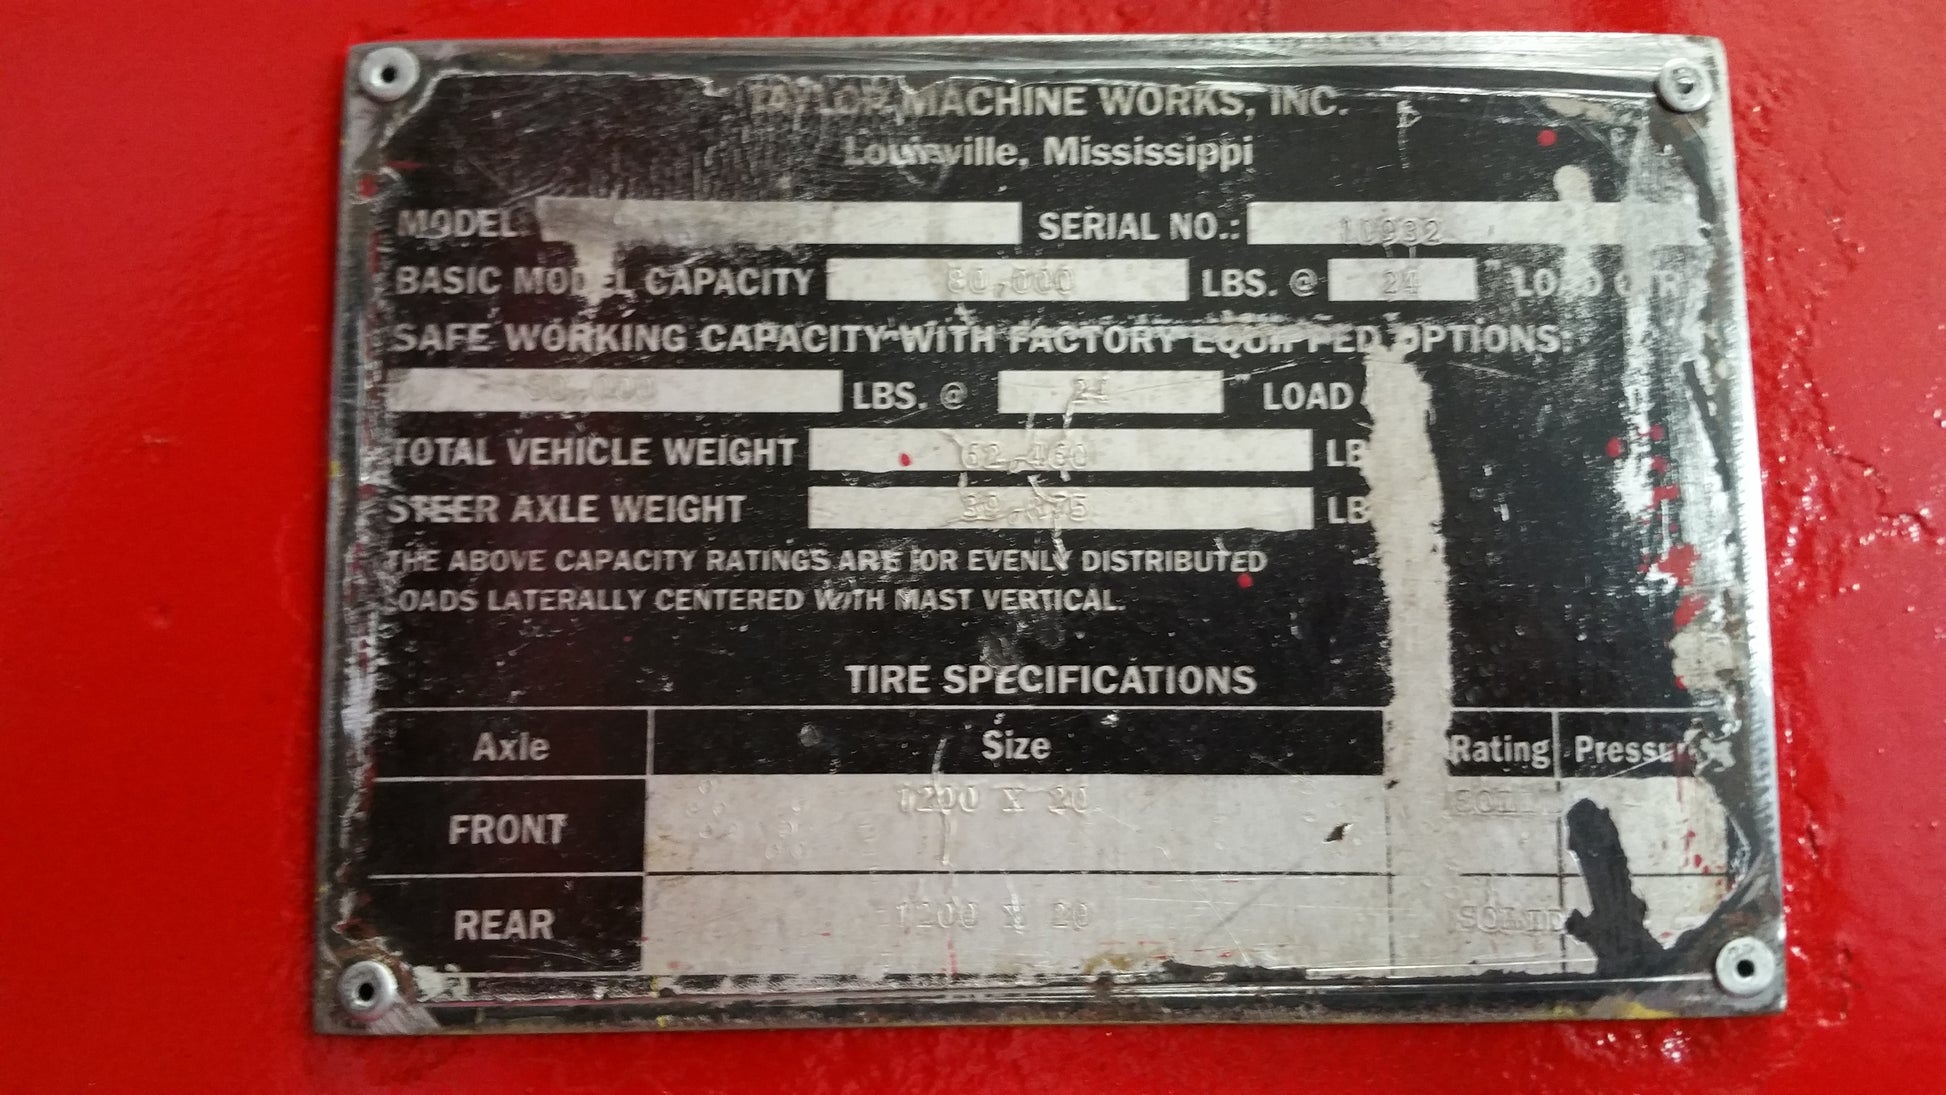 TAYLOR MACHINE WORKS, INC.
Louisville, Mississippi
MODEL: SERIAL NO.: 10932
BASIC MODEL CAPACITY 80,000 LBS. @ 24 " LOAD CTR
SAFE WORKING CAPACITY WITH FACTORY EQUIPPED OPTIONS:
LBS. @ 24 LOAD
TOTAL VEHICLE WEIGHT 62,460 LB
STEER AXLE WEIGHT LB
THE ABOVE CAPACITY RATINGS ARE FOR EVENLY DISTRIBUTED
LOADS LATERALLY CENTERED WITH MAST VERTICAL.
TIRE SPECIFICATIONS
Axle Size Rating Pressu
FRONT 1200 X 20 SOLID
REAR 1200 X 20 SOLID